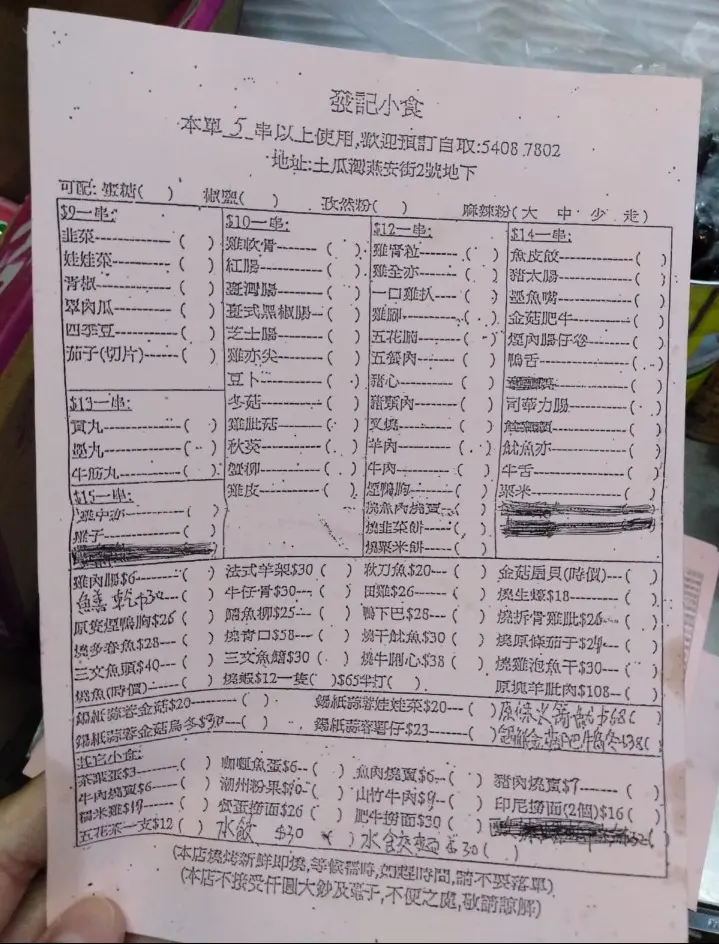 發記小食
本單 5 串以上使用,歡迎預訂自取:5408 7802
地址:土瓜灣燕安街2號地下
可配: 蜜糖( ) 椒鹽( ) 孜然粉( ) 麻辣粉(大 中 少 走)
$9一串:
韭菜-------------( )
娃娃菜-----------( )
青椒-------------( )
翠肉瓜-----------( )
四季豆-----------( )
茄子(切片)------( )
$13一串:
貢丸-------------( )
墨丸-------------( )
牛筋丸-----------( )
$15一串:
雞中亦-----------( )
$10一串:
雞軟骨-------( )
紅腸---------( )
臺灣腸-------( )
臺式黑椒腸---( )
芝士腸-------( )
雞亦尖-------( )
豆卜---------( )
冬菇---------( )
雞肶菇-------( )
秋葵---------( )
蟹柳---------( )
雞皮---------( )
$12一串:
雞腎粒-----( )
雞全亦-----( )
一口雞扒---( )
雞腳-------( )
五花腩-----( )
五餐肉-----( )
豬心-------( )
豬頸肉-----( )
叉燒-------( )
羊肉-------( )
牛肉-------( )
煙鴨胸-----( )
燒魚肉燒賣--( )
燒韭菜餅---( )
燒粟米餅---( )
$14一串:
魚皮餃-----------( )
豬大腸-----------( )
墨魚嘴-----------( )
金菇肥牛---------( )
煙肉腸仔卷------( )
鴨舌-------------( )
司華力腸---------( )
魷魚亦-----------( )
牛舌-------------( )
粟米-------------( )
雞肉腸$6--------( ) 法式羊架$30 ( ) 秋刀魚$20---( ) 金菇扇貝(時價)---( )
鱔乾$30---( ) 牛仔骨$30---( ) 田雞$26------( ) 燒生蠔$18--------( )
原隻煙鴨胸$26 ( ) 鯧魚柳$25---( ) 鴨下巴$28---( ) 燒拆骨雞肶$26---( )
燒多春魚$28---( ) 燒青口$58---( ) 燒干魷魚$30 ( ) 燒原條茄子$24---( )
三文魚頭$40---( ) 三文魚鰭$30 ( ) 燒牛開心$38 ( ) 燒雞泡魚干$30---( )
燒魚(時價)-----( ) 燒蝦$12一隻( )$65半打( ) 原塊羊肶肉$108--( )
錫紙蒜蓉金菇$20--------( ) 錫紙蒜蓉娃娃菜$20---( )
錫紙蒜蓉金菇烏冬$30---( ) 錫紙蒜蓉薯仔$23-----( ) 錫紙金菇肥牛烏冬$38( )
其它小食:
茶葉蛋$3--------( ) 咖喱魚蛋$6--( ) 魚肉燒賣$6--( ) 豬肉燒賣$7------( )
牛肉燒賣$6------( ) 潮州粉果$10--( ) 山竹牛肉$9--( ) 印尼撈面(2個)$16( )
糯米雞$19------( ) 餐蛋撈面$26 ( ) 肥牛撈面$30 ( )
五花茶一支$12( ) 水餃 $30 ( ) 水餃撈麵$30( )
(本店燒烤新鮮即燒,等候需時,如趕時間,請不要落單)
(本店不接受仟圓大鈔及電子,不便之處,敬請諒解)